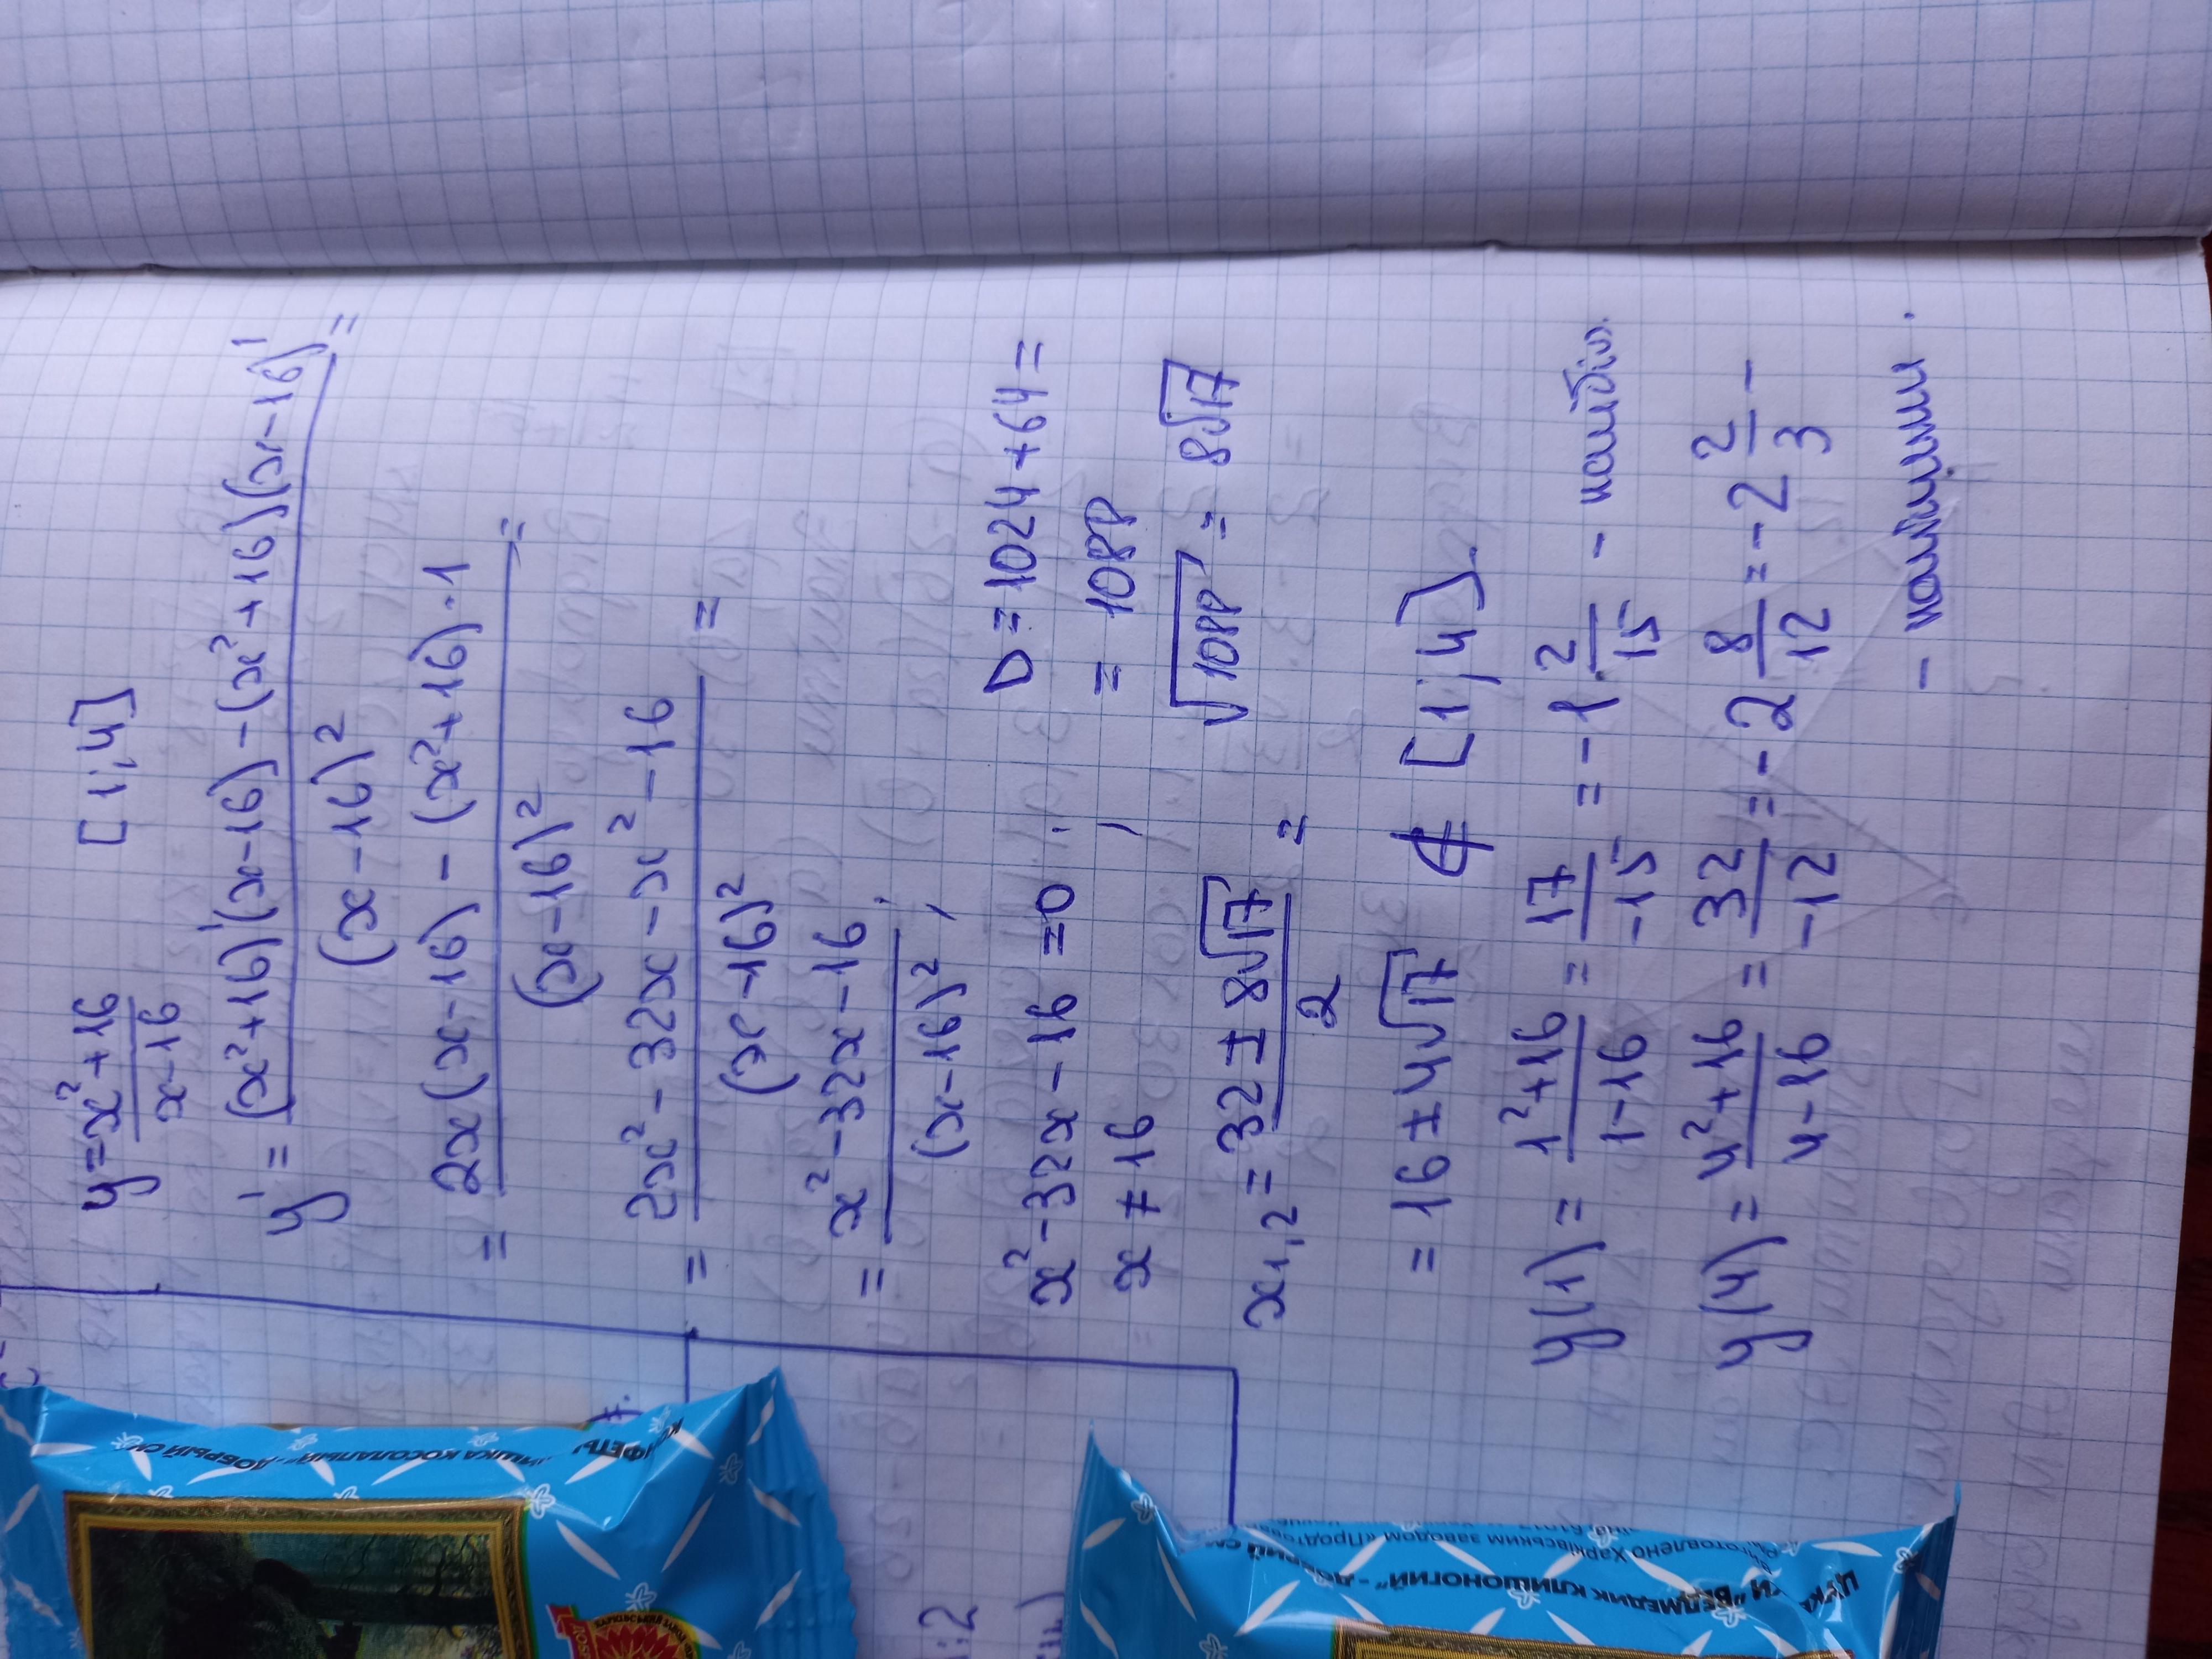 y = x²+16 / x-16 [1;4]
y' = (x²+16)'(x-16)-(x²+16)(x-16)' / (x-16)² =
= 2x(x-16)-(x²+16)·1 / (x-16)² =
= 2x²-32x-x²-16 / (x-16)² =
= x²-32x-16 / (x-16)² ;
x²-32x-16 = 0 ; D = 1024+64 =
x ≠ 16 , = 1088
x₁,₂ = 32 ± 8√17 / 2 = √1088 = 8√17
= 16 ± 4√17 ∉ [1;4].
y(1) = 1²+16 / 1-16 = 17 / -15 = -1 2/15 - найбіл.
y(4) = 4²+16 / 4-16 = 32 / -12 = -2 8/12 = -2 2/3 -
- найменш.
ИШКА КОСОЛАПЫЙ" - ДОБРЫЙ
"ВЕДМЕДИК КЛИШОНОГИЙ"
Харківським заводом
:2